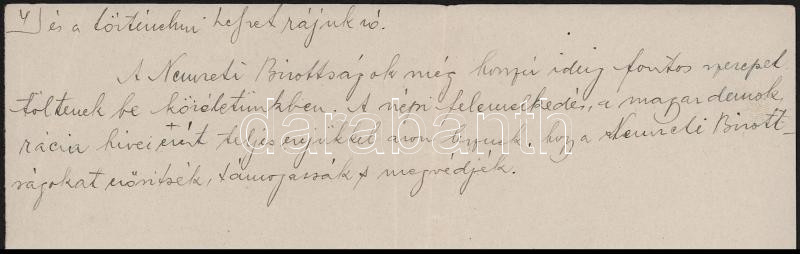 4) és a történelmi helyzet rájuk ró.
A Nemzeti Bizottságok még hosszú ideig fontos szerepet
töltenek be közéletünkben. A népi felemelkedés, a magyar demok
rácia hívei ezért teljes erejükkel azon legyenek, hogy a Nemzeti Bizott-
ságokat erősítsék, támogassák s megvédjék.
darabanth.com